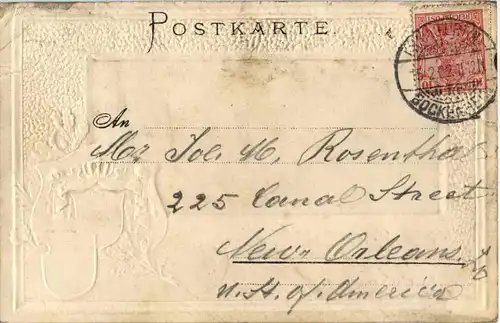 POSTKARTE.
An
Mr Jos. M. Rosenthal
225 Canal Street
New Orleans
U. St. of America
BOCKENHEIM